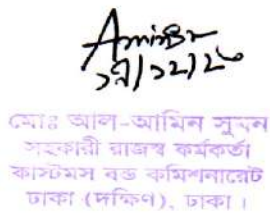 ১৭/১২/২০
মোঃ আল-আমিন সুমন
সহকারী রাজস্ব কর্মকর্তা
কাস্টমস বন্ড কমিশনারেট
ঢাকা (দক্ষিণ), ঢাকা।